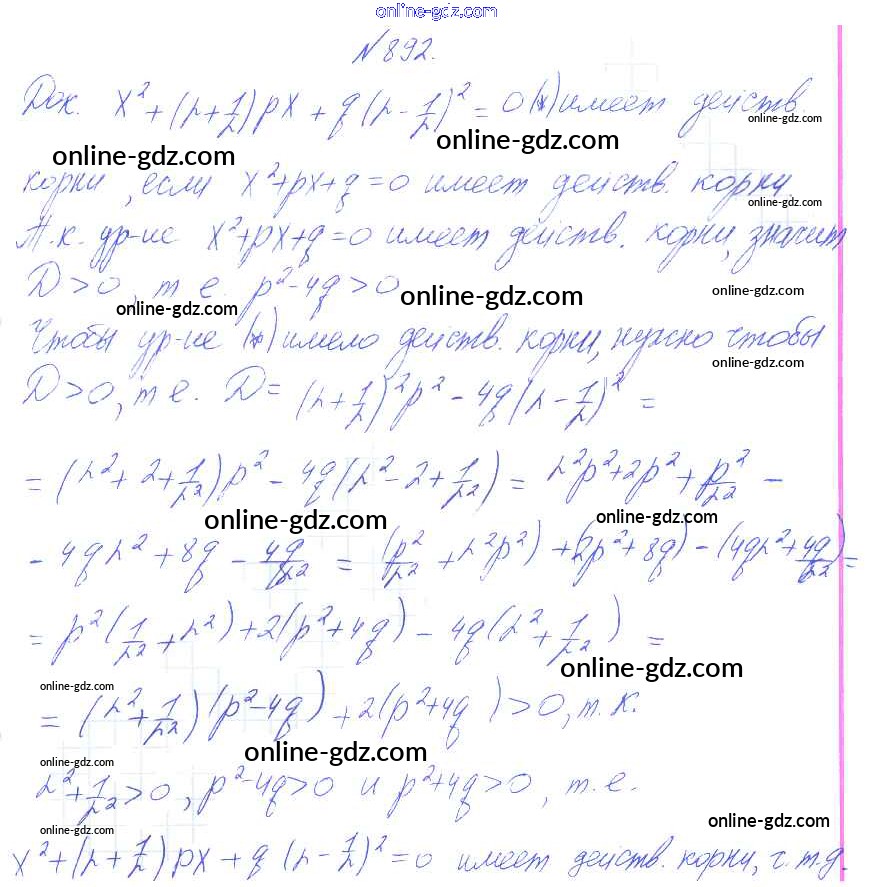 online-gdz.com
№892.
Док. x² + (λ + 1/λ) px + q (λ - 1/λ)² = 0 (*) имеет действ.
online-gdz.com
online-gdz.com
online-gdz.com
корни, если x²+px+q=0 имеет действ. корни.
online-gdz.com
Т.к. ур-ие x²+px+q=0 имеет действ. корни, значит
D>0, т.е. p²-4q>0
online-gdz.com
online-gdz.com
online-gdz.com
Чтобы ур-ие (*) имело действ. корни, нужно чтобы
online-gdz.com
D>0, т.е. D = (λ + 1/λ)² p² - 4q (λ - 1/λ)² =
= (λ² + 2 + 1/λ²) p² - 4q (λ² - 2 + 1/λ²) = λ²p² + 2p² + p²/λ² -
online-gdz.com
online-gdz.com
- 4qλ² + 8q - 4q/λ² = (p²/λ² + λ²p²) + (2p² + 8q) - (4qλ² + 4q/λ²) =
= p² (1/λ² + λ²) + 2(p² + 4q) - 4q (λ² + 1/λ²) =
online-gdz.com
online-gdz.com
= (λ² + 1/λ²)(p² - 4q) + 2(p² + 4q) > 0, т.к.
online-gdz.com
λ² + 1/λ² > 0, p² - 4q > 0 и p² + 4q > 0, т.е.
online-gdz.com
online-gdz.com
x² + (λ + 1/λ) px + q (λ - 1/λ)² = 0 имеет действ. корни, ч.т.д.